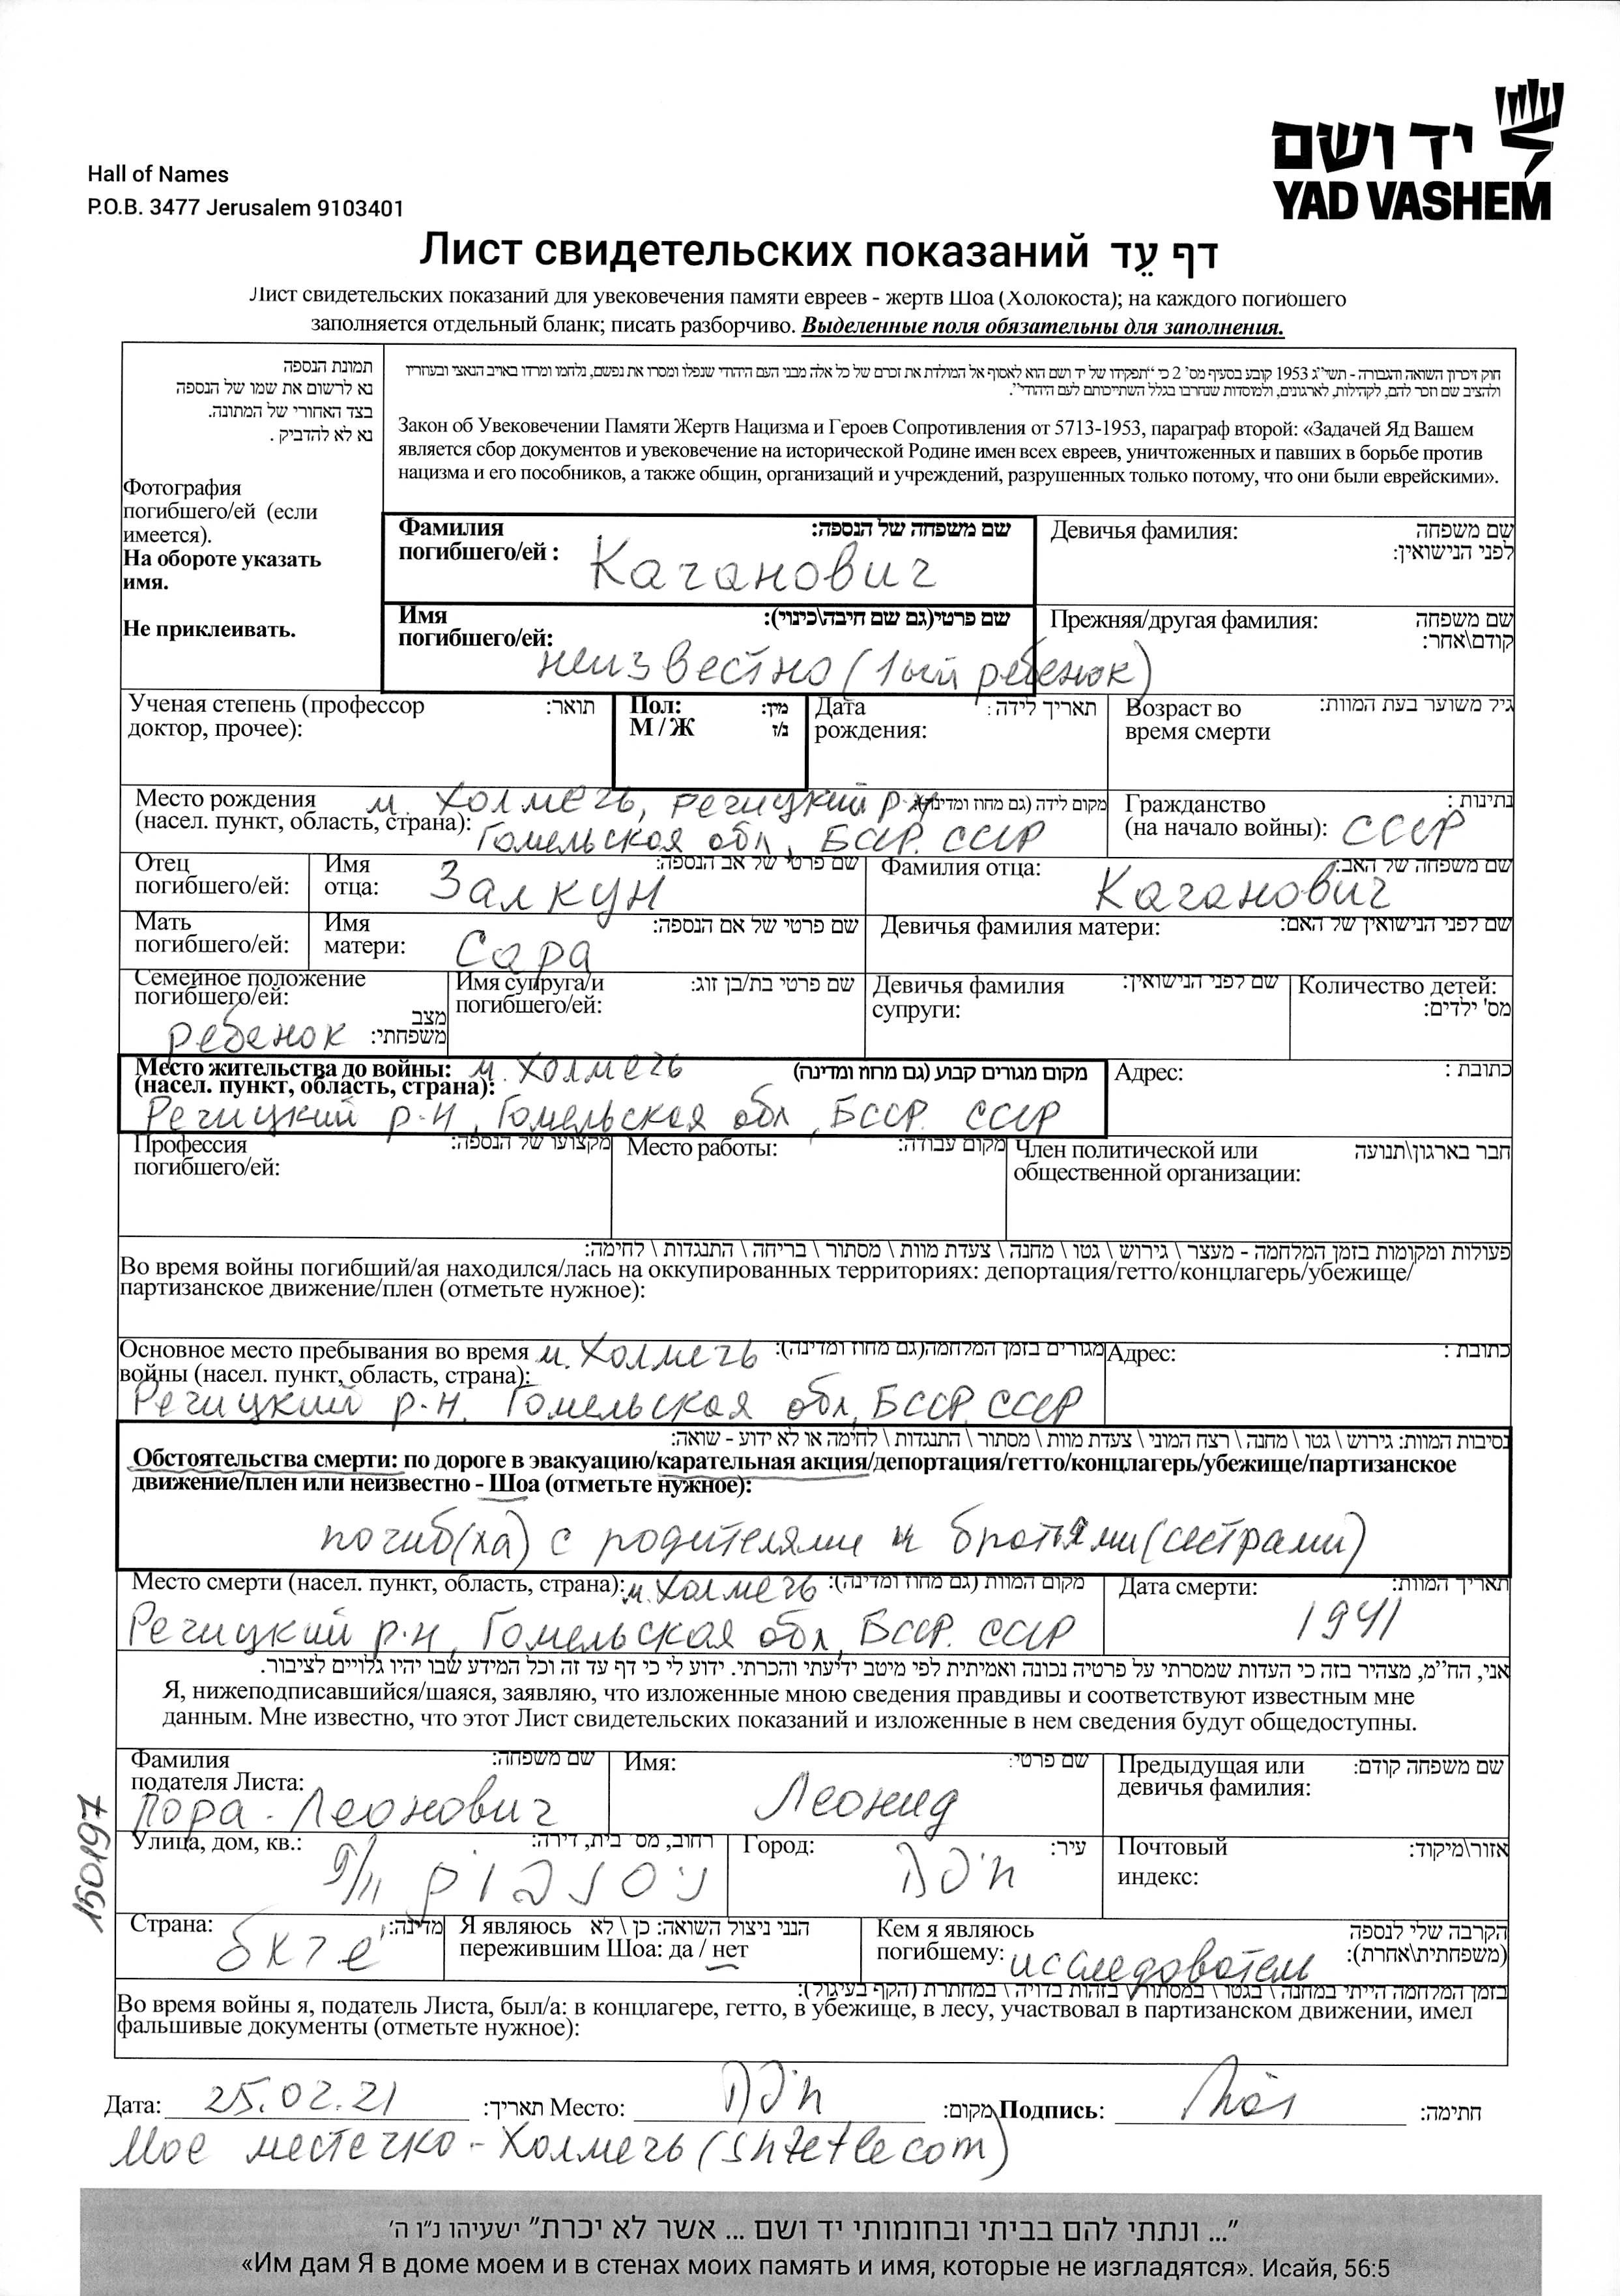 Hall of Names
P.O.B. 3477 Jerusalem 9103401
יד ושם
YAD VASHEM
Лист свидетельских показаний דף עֵד
Лист свидетельских показаний для увековечения памяти евреев - жертв Шоа (Холокоста); на каждого погибшего
заполняется отдельный бланк; писать разборчиво. Выделенные поля обязательны для заполнения.
תמונת הנספה
נא לרשום את שמו של הנספה
בצד האחורי של המתונה.
נא לא להדביק .
Фотография
погибшего/ей (если
имеется).
На обороте указать
имя.
Не приклеивать.
חוק זיכרון השואה והגבורה - תשי״ג 1953 קובע בסעיף מס׳ 2 כי ״תפקידו של יד ושם הוא לאסוף אל המולדת את זכרם של כל אלה מבני העם היהודי שנפלו ומסרו את נפשם, נלחמו ומרדו באויב הנאצי ובעוזריו
ולהציב שם וזכר להם, לקהילות, לארגונים, ולמוסדות שנחרבו בגלל השתייכותם לעם היהודי״.
Закон об Увековечении Памяти Жертв Нацизма и Героев Сопротивления от 5713-1953, параграф второй: «Задачей Яд Вашем
является сбор документов и увековечение на исторической Родине имен всех евреев, уничтоженных и павших в борьбе против
нацизма и его пособников, а также общин, организаций и учреждений, разрушенных только потому, что они были еврейскими».
Фамилия שם משפחה של הנספה:
погибшего/ей : Каганович
Девичья фамилия: שם משפחה
לפני הנישואין:
Имя שם פרטי(גם שם חיבה\כינוי):
погибшего/ей:
неизвестно (1ый ребенок)
Прежняя/другая фамилия: שם משפחה
קודם\אחר:
Ученая степень (профессор תואר:
доктор, прочее):
Пол: מין:
М / Ж נ/ז
Дата תאריך לידה :
рождения:
Возраст во גיל משוער בעת המוות:
время смерти
Место рождения м. Холмечь, Речицкий р-н מקום לידה (גם מחוז ומדינה)
(насел. пункт, область, страна): Гомельская обл, БССР. СССР
Гражданство נתינות :
(на начало войны): СССР
Отец
погибшего/ей:
Имя שם פרטי של אב הנספה:
отца: Залкун
Фамилия отца: שם משפחה של האב:
Каганович
Мать
погибшего/ей:
Имя שם פרטי של אם הנספה:
матери: Сара
Девичья фамилия матери: שם לפני הנישואין של האם:
Семейное положение
погибшего/ей:
מצב
משפחתי: ребенок
Имя супруга/и שם פרטי בת/בן זוג:
погибшего/ей:
Девичья фамилия שם לפני הנישואין:
супруги:
Количество детей:
מס' ילדים:
Место жительства до войны: м. Холмечь מקום מגורים קבוע (גם מחוז ומדינה)
(насел. пункт, область, страна):
Речицкий р-н, Гомельская обл, БССР. СССР
Адрес: כתובת :
Профессия מקצועו של הנספה:
погибшего/ей:
Место работы: מקום עבודה:
Член политической или חבר בארגון\תנועה
общественной организации:
פעולות ומקומות בזמן המלחמה - מעצר \ גירוש \ גטו \ מחנה \ צעדת מוות \ מסתור \ בריחה \ התנגדות \ לחימה:
Во время войны погибший/ая находился/лась на оккупированных территориях: депортация/гетто/концлагерь/убежище/
партизанское движение/плен (отметьте нужное):
Основное место пребывания во время м. Холмечь מגורים בזמן המלחמה(גם מחוז ומדינה):
войны (насел. пункт, область, страна):
Речицкий р-н, Гомельская обл, БССР, СССР
Адрес: כתובת :
נסיבות המוות: גירוש \ גטו \ מחנה \ רצח המוני \ צעדת מוות \ מסתור \ התנגדות \ לחימה או לא ידוע - שואה:
Обстоятельства смерти: по дороге в эвакуацию/карательная акция/депортация/гетто/концлагерь/убежище/партизанское
движение/плен или неизвестно - Шоа (отметьте нужное):
погиб(ла) с родителями и братьями(сестрами)
Место смерти (насел. пункт, область, страна): м. Холмечь מקום המוות (גם מחוז ומדינה):
Речицкий р-н, Гомельская обл, БССР. СССР
Дата смерти: תאריך המוות:
1941
אני, הח״מ, מצהיר בזה כי העדות שמסרתי על פרטיה נכונה ואמיתית לפי מיטב ידיעתי והכרתי. ידוע לי כי דף עד זה וכל המידע שבו יהיו גלויים לציבור.
Я, нижеподписавшийся/шаяся, заявляю, что изложенные мною сведения правдивы и соответствуют известным мне
данным. Мне известно, что этот Лист свидетельских показаний и изложенные в нем сведения будут общедоступны.
Фамилия שם משפחה:
подателя Листа:
Лора-Леонович
Имя: שם פרטי:
Леонид
Предыдущая или שם משפחה קודם:
девичья фамилия:
Улица, дом, кв.: רחוב, מס׳ בית, דירה:
9/11
Город: עיר:
חיפה
Почтовый אזור\מיקוד:
индекс:
150197
Страна: מדינה:
ישראל
Я являюсь הנני ניצול השואה: כן \ לא
пережившим Шоа: да / нет
Кем я являюсь הקרבה שלי לנספה
погибшему: исследователь (משפחתית\אחרת):
בזמן המלחמה הייתי במחנה \ בגטו \ במסתור \ בזהות בדויה \ במחתרת (הקף בעיגול):
Во время войны я, податель Листа, был/а: в концлагере, гетто, в убежище, в лесу, участвовал в партизанском движении, имел
фальшивые документы (отметьте нужное):
Дата: 25.02.21 תאריך: Место: חיפה מקום: Подпись: חתימה:
Мое местечко - Холмечь (shtetle com)
״... ונתתי להם בביתי ובחומותי יד ושם ... אשר לא יכרת״ ישעיהו נ״ו ה׳
«Им дам Я в доме моем и в стенах моих память и имя, которые не изгладятся». Исайя, 56:5